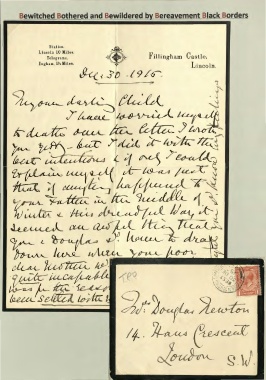 Bewitched Bothered and Bewildered by Bereavement Black Borders
Station
Lincoln 10 Miles
Telegrams,
Ingham 2½ Miles.
Fillingham Castle,
Lincoln.
Dec. 30 1915
My own darling Child
I have worried myself
to death over the letter I wrote
you - but I did it with the
best intentions & if only I could
explain myself it was just
that if anything happened to
your Father in the middle of
Winter & this dreadful War, it
seemed an awful thing that
you & Douglas to drag
down here when your poor
dear Mother
quite incapable
been settled with
Mrs Douglas Newton
14. Hans Crescent
London
S.W.